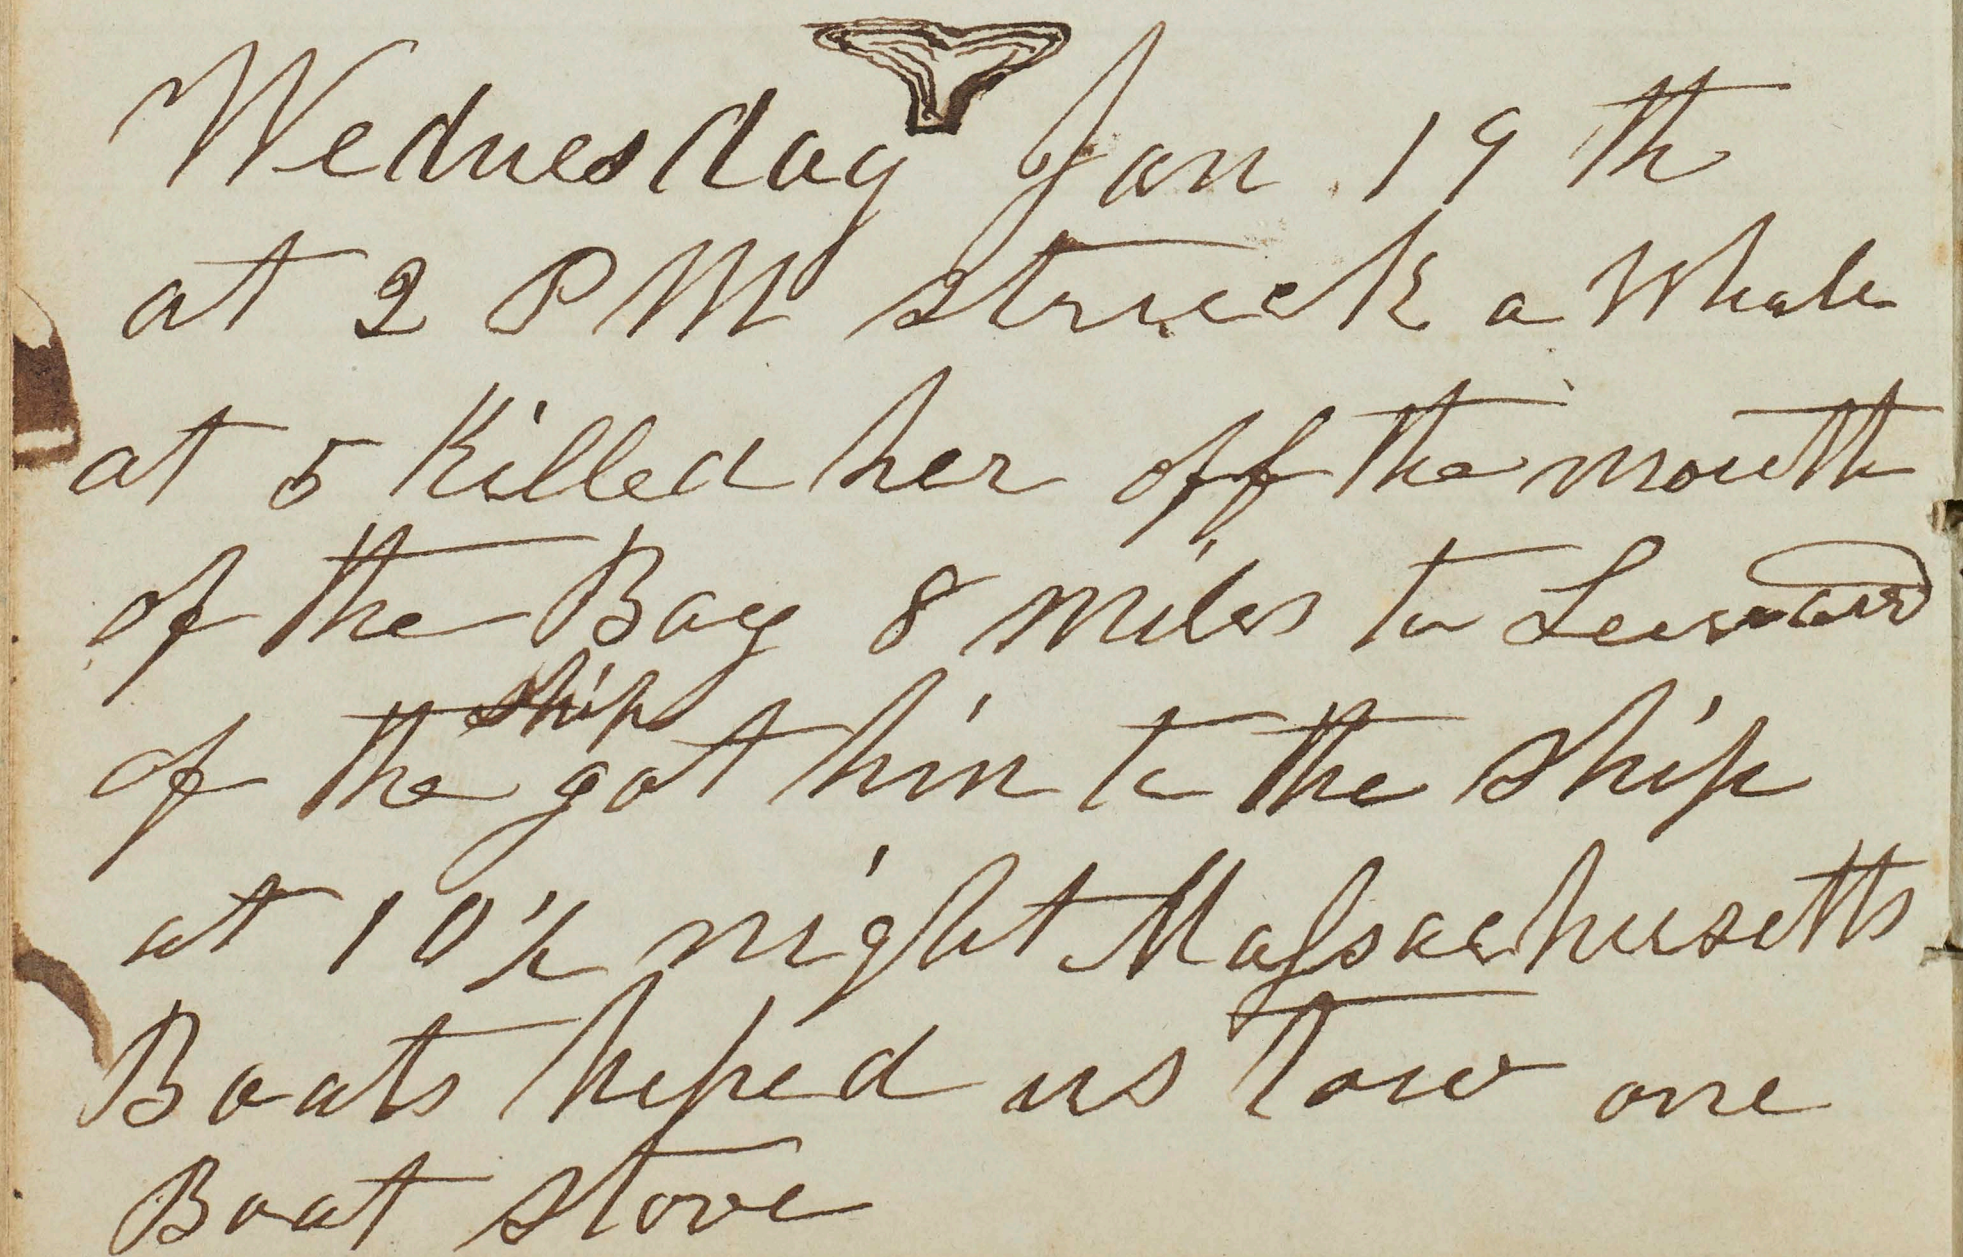 Wednesday Jan 19th
at 2 PM struck a Whale
at 5 killed her off the mouth
of the Bay 8 miles to Leeward
of the ship got him to the ship
at 10½ night Massachusetts
Boats hiped us tow one
Boat stove